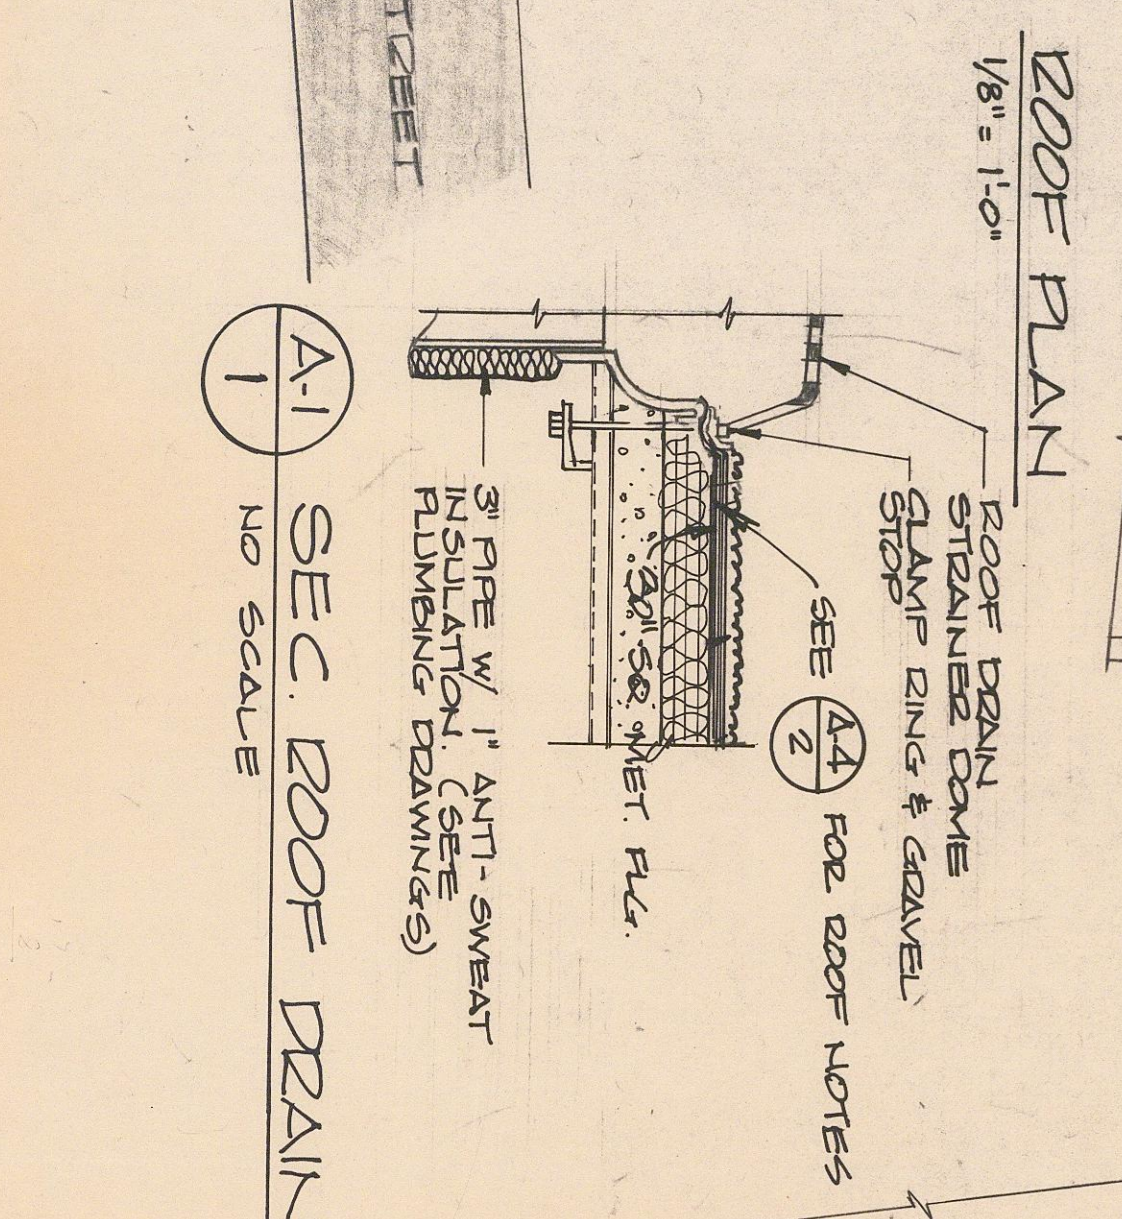 ROOF PLAN
1/8" = 1'-0"
ROOF DRAIN
STRAINER DOME
CLAMP RING & GRAVEL
STOP
SEE A-4 2 FOR ROOF NOTES
30" SQ MET. FLG.
3" PIPE W/ 1" ANTI-SWEAT
INSULATION. (SEE
PLUMBING DRAWINGS)
A-1
1
SEC. ROOF DRAIN
NO SCALE